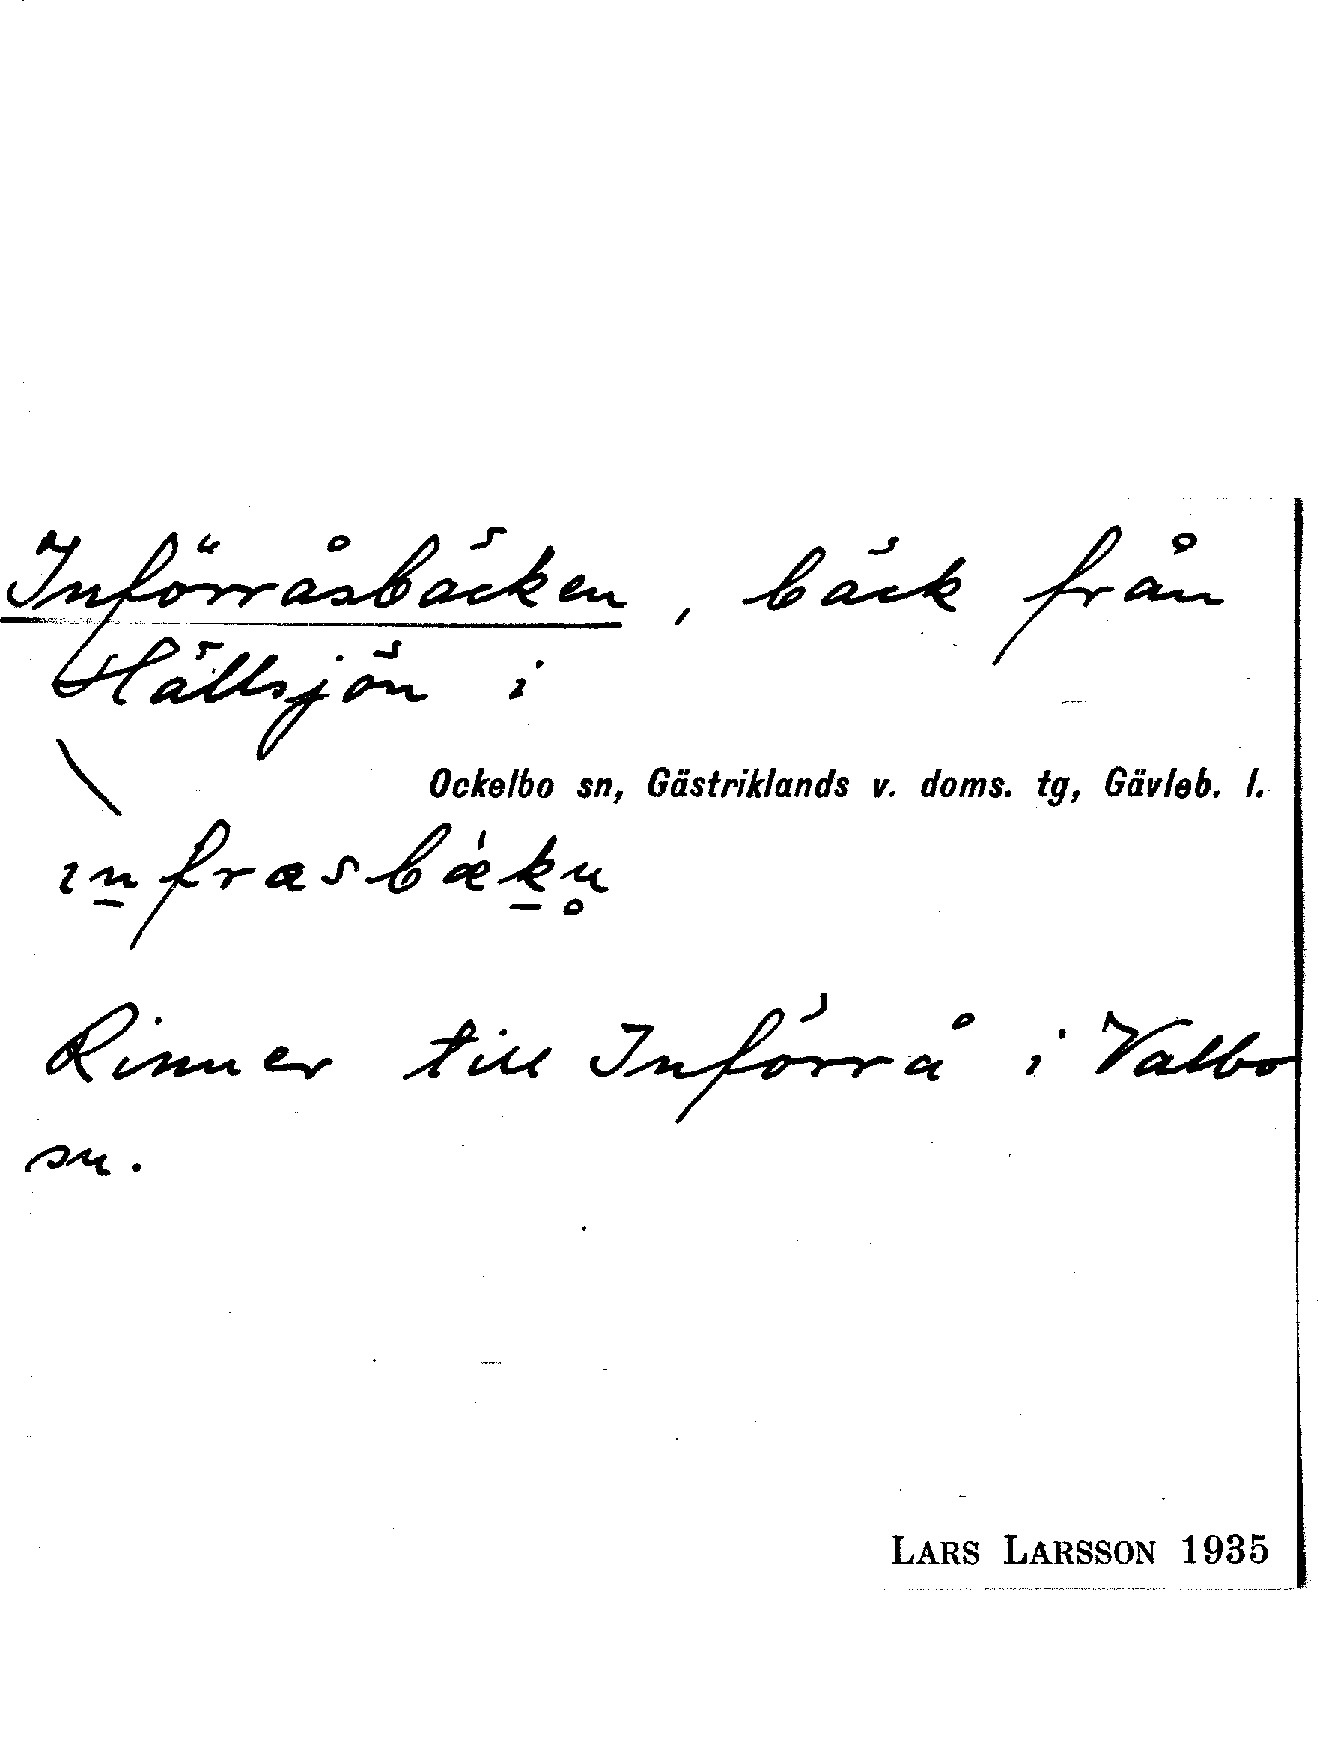 Införråsbäcken, bäck från
Hällsjön i
Ockelbo sn, Gästriklands v. doms. tg, Gävleb. l.
ın̲fræsbǽk̲n̥
Rinner till Införrå i Valbo
sn.
LARS LARSSON 1935